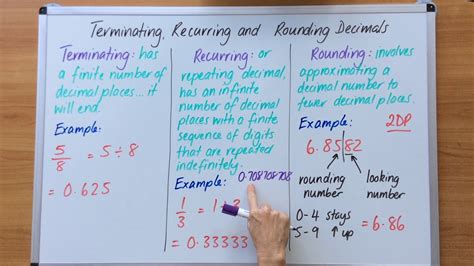 Terminating, Recurring and Rounding Decimals
Terminating: has
a finite number of
decimal places... it
will end.
Example:
5/8 = 5 ÷ 8
= 0.625
Recurring: or
repeating decimal,
has an infinite
number of decimal
places with a finite
sequence of digits
that are repeated
indefinitely.
Example: 0.708708708
1/3 = 1 ÷ 3
= 0.33333
Rounding: involves
approximating a
decimal number to
fewer decimal places.
Example: 2DP
6.85|82
rounding looking
number number
0-4 stays
5-9 ↑ up
= 6.86